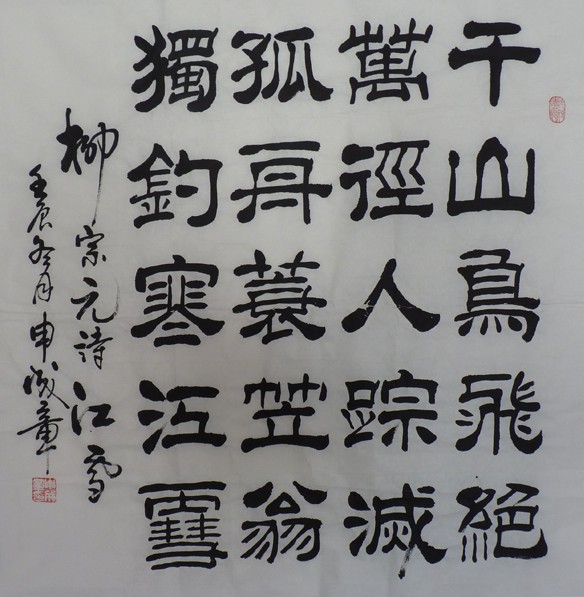 千山鳥飛絕
萬徑人踪滅
孤舟蓑笠翁
獨釣寒江雪
柳宗元詩江雪
壬辰冬月申成章